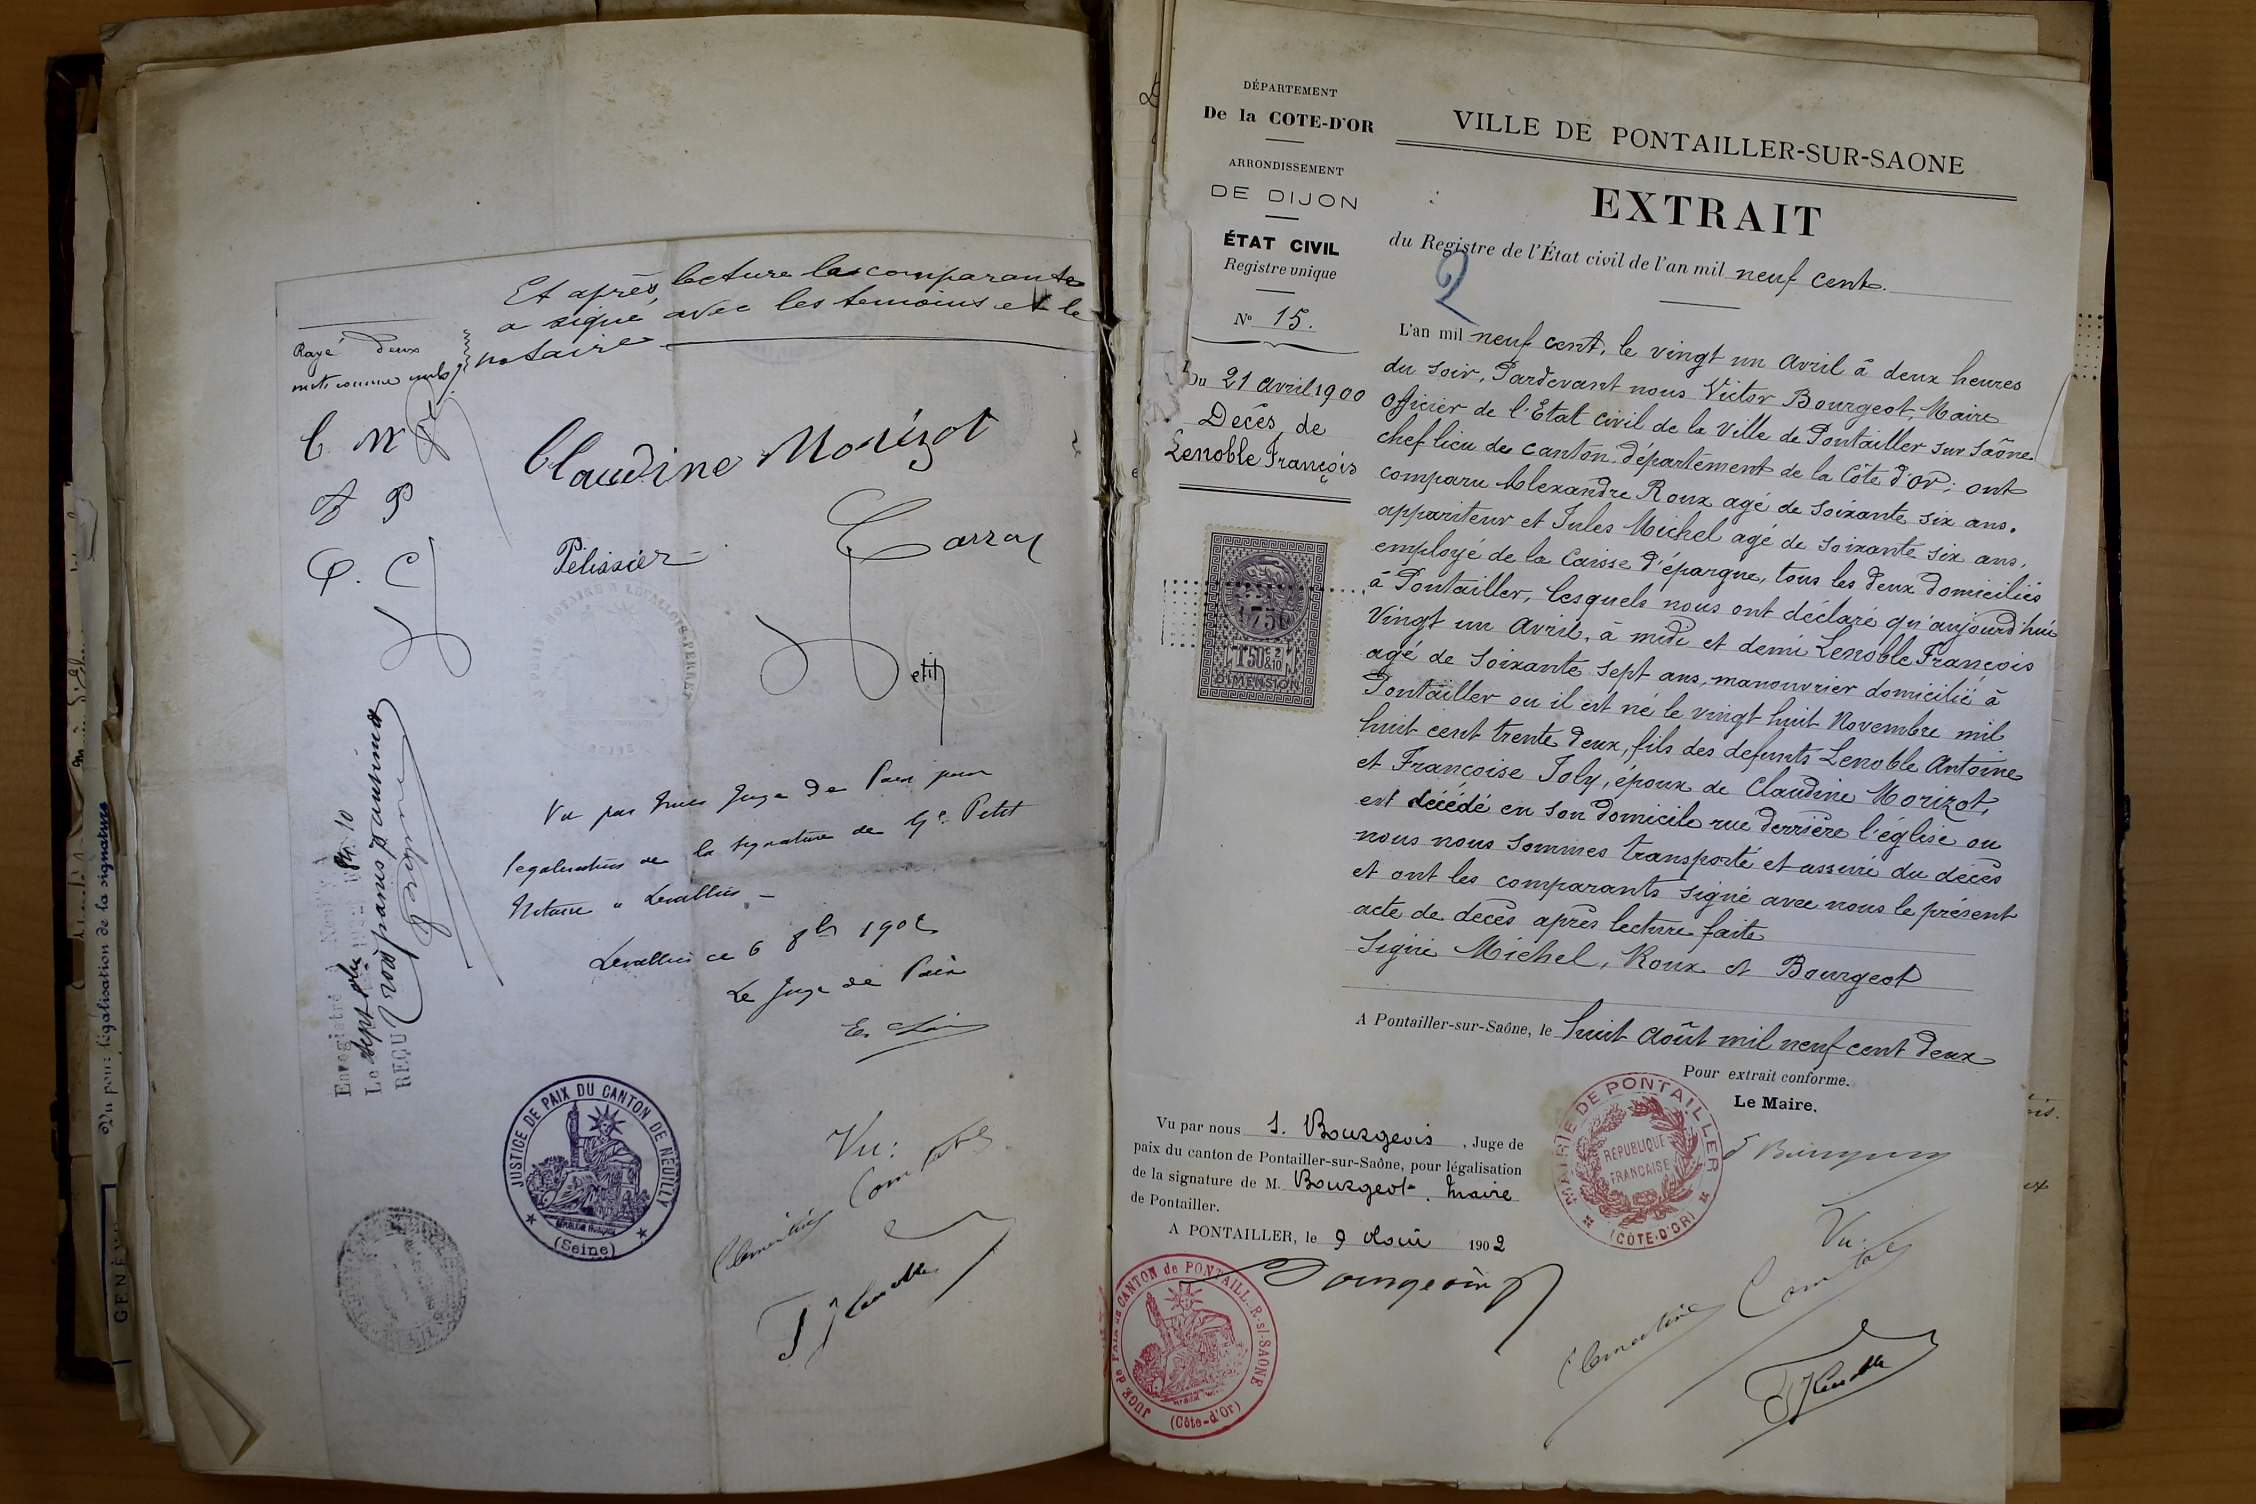 Et après lecture la comparante
a signé avec les témoins et le
notaire
Rayé deux
mots comme nuls
C M
P
Claudine Morizot
Pélissier
Petit
Vu par nous Juge de Paix pour
légalisation de la signature de Me Petit
Notaire à Levallois
Levallois ce 6 8bre 1902
Le Juge de Paix
Enregistré à
Le sept
REÇU trois francs 75 centimes
JUSTICE DE PAIX DU CANTON DE NEUILLY
(Seine)
Vu:
Clémentine Comtole
Vu pour légalisation de la signature
GENÈVE
DÉPARTEMENT
De la COTE-D'OR
ARRONDISSEMENT
DE DIJON
ÉTAT CIVIL
Registre unique
N° 15.
Du 21 avril 1900
Décès de
Lenoble François
1F50c 2/10
DIMENSION
VILLE DE PONTAILLER-SUR-SAONE
EXTRAIT
du Registre de l'État civil de l'an mil neuf cent.
2
L'an mil neuf cent, le vingt un Avril à deux heures
du soir, Pardevant nous Victor Bourgeot, Maire
officier de l'Etat civil de la Ville de Pontailler sur Saône
chef lieu de canton, département de la Côte d'or; ont
comparu Alexandre Roux agé de soixante six ans.
appariteur et Jules Michel agé de soixante six ans,
employé de la Caisse d'épargne, tous les deux domiciliés
à Pontailler, lesquels nous ont déclaré qu'aujourd'hui
Vingt un Avril, à midi et demi Lenoble François
agé de soixante sept ans, manouvrier domicilié à
Pontailler ou il est né le vingt huit Novembre mil
huit cent trente deux, fils des defunts Lenoble Antoine
et Françoise Joly, époux de Claudine Morizot,
est décédé en son domicile rue derrière l'église ou
nous nous sommes transporté et assuré du décès
et ont les comparants signé avec nous le présent
acte de décès après lecture faite
Signé Michel, Roux et Bourgeot
A Pontailler-sur-Saône, le huit Août mil neuf cent deux
Pour extrait conforme.
Le Maire,
MAIRIE DE PONTAILLER
RÉPUBLIQUE
FRANÇAISE
(CÔTE-D'OR)
Vu par nous S. Bourgeois, Juge de
paix du canton de Pontailler-sur-Saône, pour légalisation
de la signature de M. Bourgeot, Maire
de Pontailler.
A PONTAILLER, le 9 Août 1902
Bourgeois
JUGE de PAIX du CANTON de PONTAILL.R-s/-SAONE
(Côte-d'Or)
Vu: